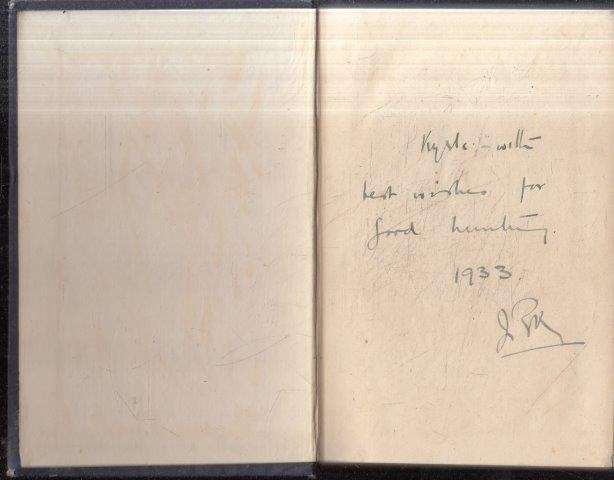 with
best wishes for
good hunting.
1933.